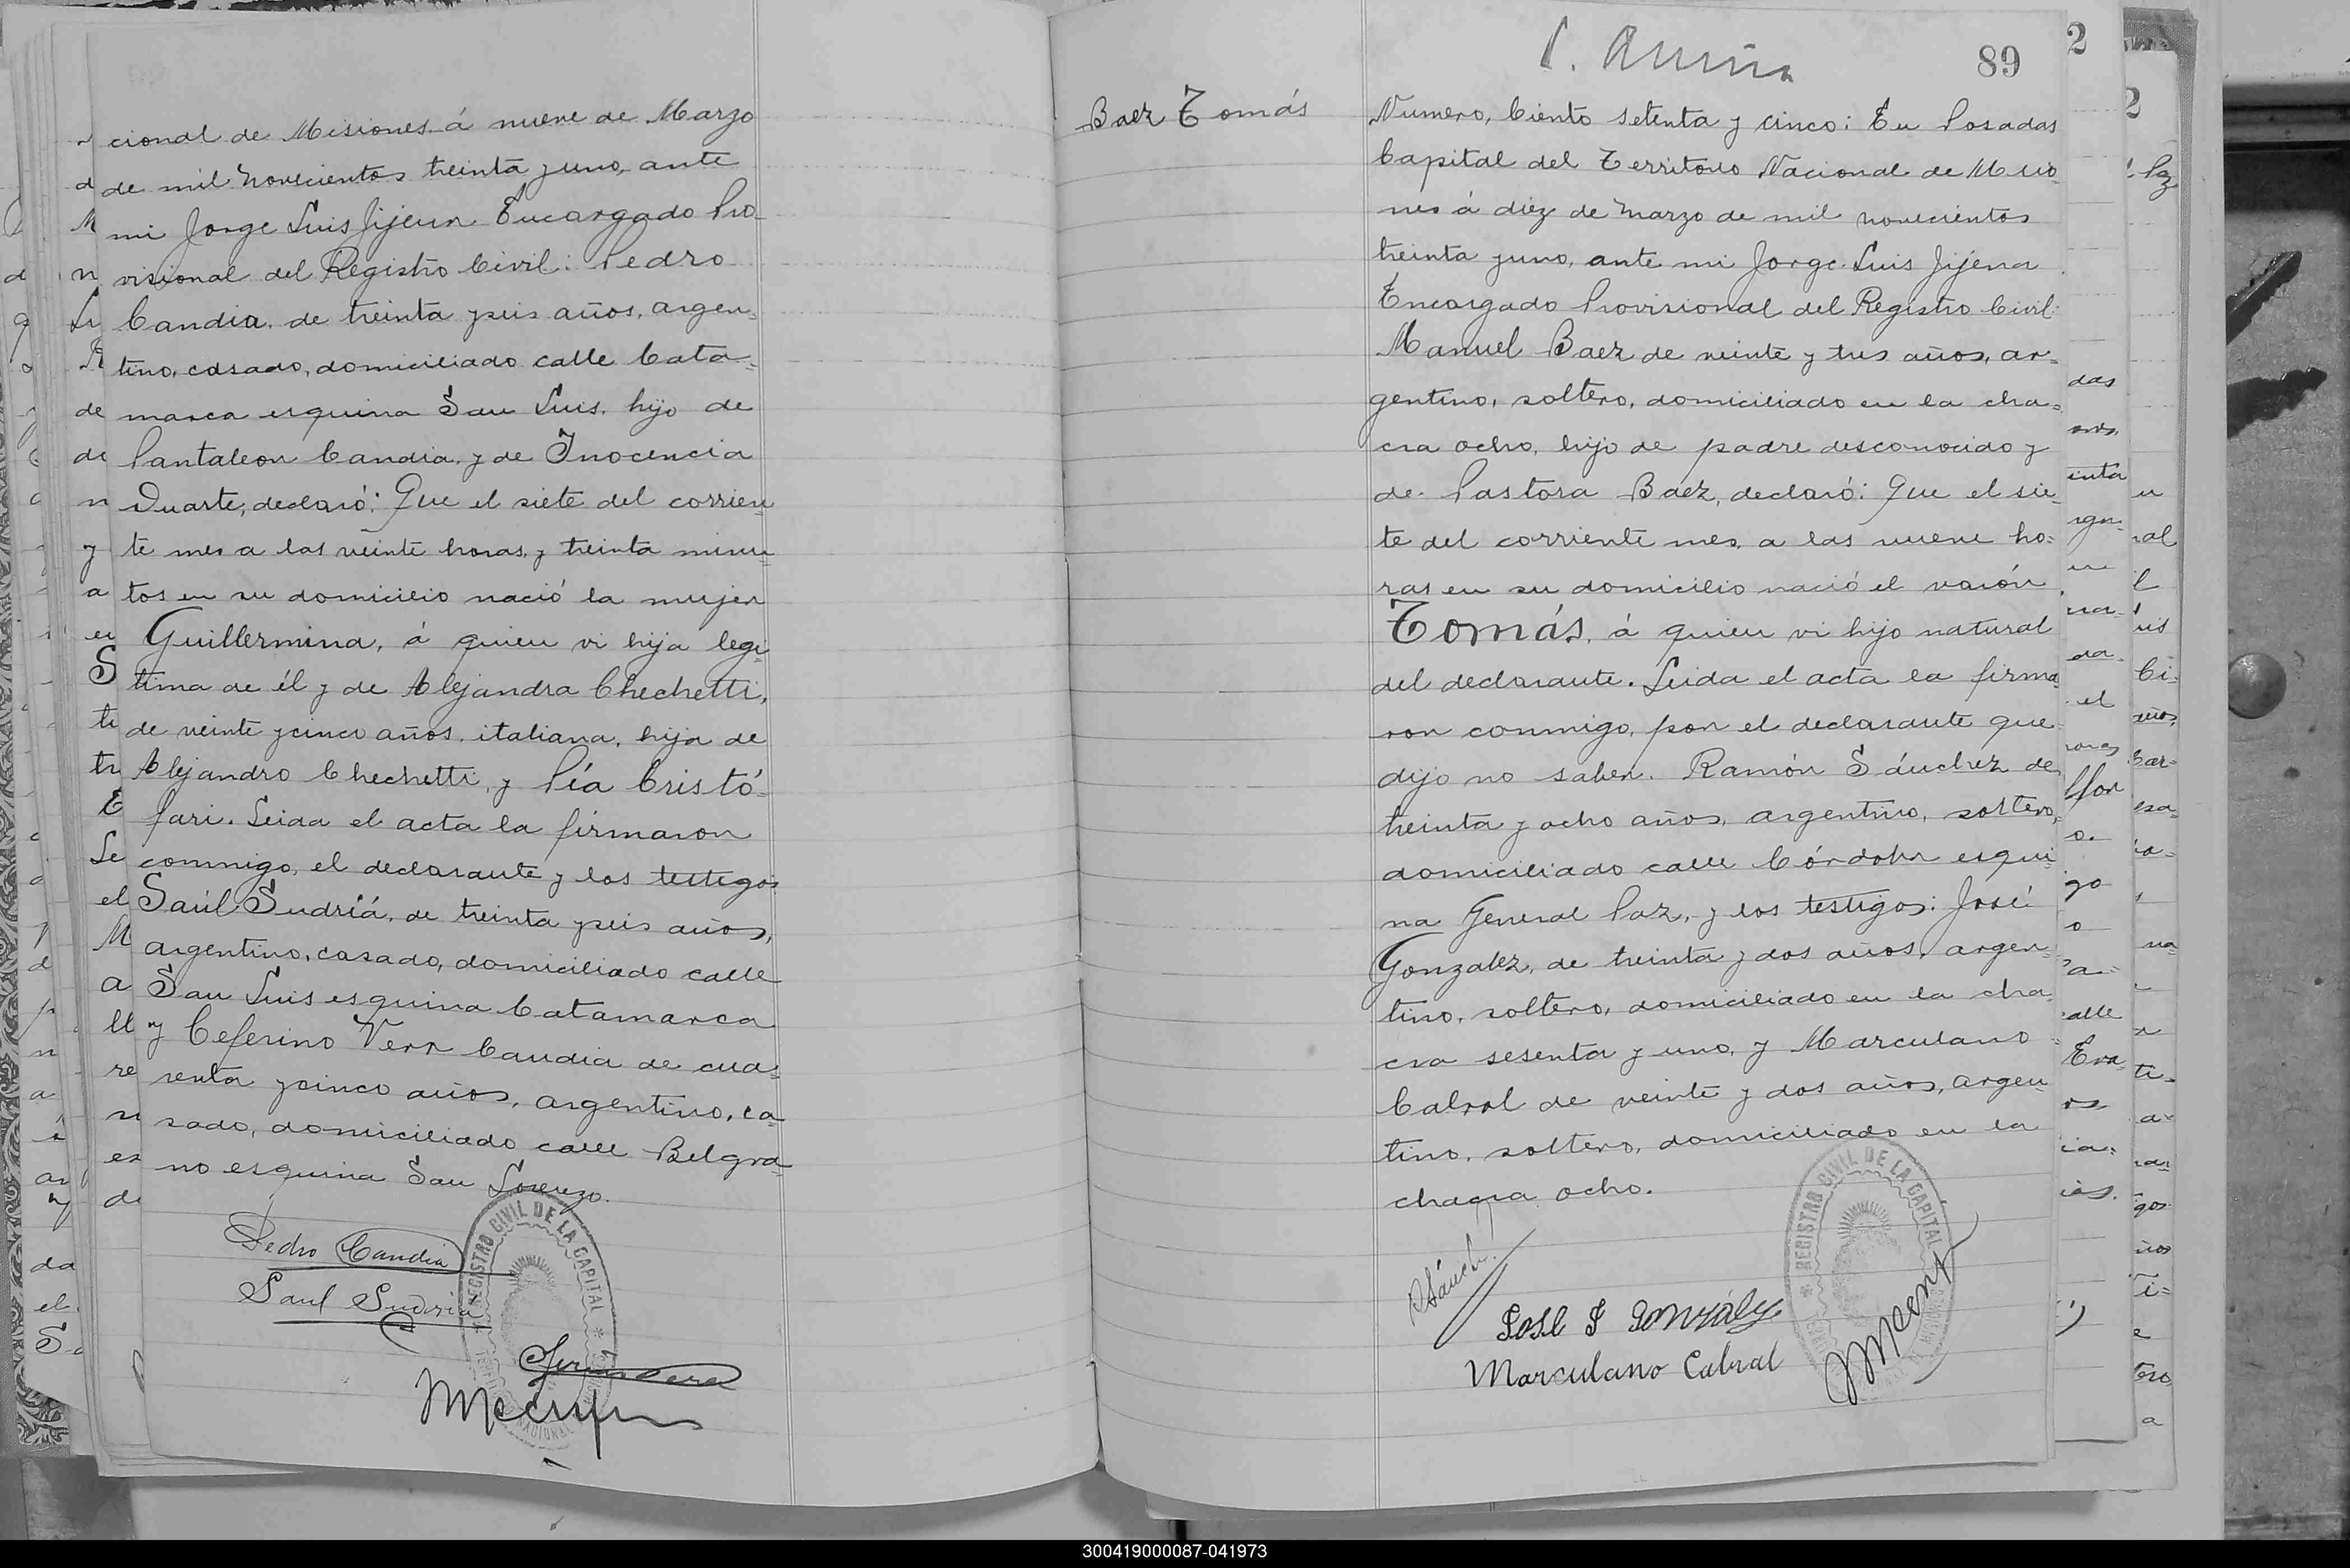 cional de Misiones á nueve de Marzo
de mil novecientos treinta y uno, ante
mi Jorge Luis Jijena Encargado Pro-
visional del Registro Civil: Pedro
Candia, de treinta y seis años, argen=
tino, casado, domiciliado calle Cata=
marca esquina San Luis, hijo de
Pantaleon Candia, y de Inocencia
Duarte, declaró: Que el siete del corrien=
te mes a las veinte horas, y treinta minu=
tos en su domicilio nació la mujer
Guillermina, á quien vi hija legi=
tima de él y de Alejandra Chechetti,
de veinte y cinco años, italiana, hija de
Alejandro Chechetti, y Pía Cristó=
fari. Leida el acta la firmaron
conmigo, el declarante y los testigos
Saúl Sudriá, de treinta y seis años,
argentino, casado, domiciliado calle
San Luis esquina Catamarca
y Ceferino Vera Candia de cua=
renta y cinco años, argentino, ca=
sado, domiciliado calle Belgra=
no esquina San Lorenzo.
Pedro Candia
Saul Sudriá
REGISTRO CIVIL DE LA CAPITAL
89
Baez Tomás
Numero, Ciento setenta y cinco: En Posadas
Capital del Territorio Nacional de Misio-
nes á diez de Marzo de mil novecientos
treinta y uno, ante mi Jorge Luis Jijena
Encargado Provisional del Registro Civil:
Manuel Baez de veinte y tres años, ar=
gentino, soltero, domiciliado en la cha=
cra ocho, hijo de padre desconocido y
de Pastora Baez, declaró: Que el sie=
te del corriente mes, a las nueve ho=
ras en su domicilio nació el varón
Tomás, á quien vi hijo natural
del declarante. Leida el acta la firma=
ron conmigo, por el declarante que
dijo no saber. Ramón Sánchez de
treinta y ocho años, argentino, soltero,
domiciliado calle Córdoba esqui=
na General Paz, y los testigos: José
Gonzalez, de treinta y dos años, argen=
tino, soltero, domiciliado en la cha=
cra sesenta y uno, y Marculano
Cabral de veinte y dos años, argen=
tino, soltero, domiciliado en la
chacra ocho.
José F González
Marculano Cabral
REGISTRO CIVIL DE LA CAPITAL
300419000087-041973